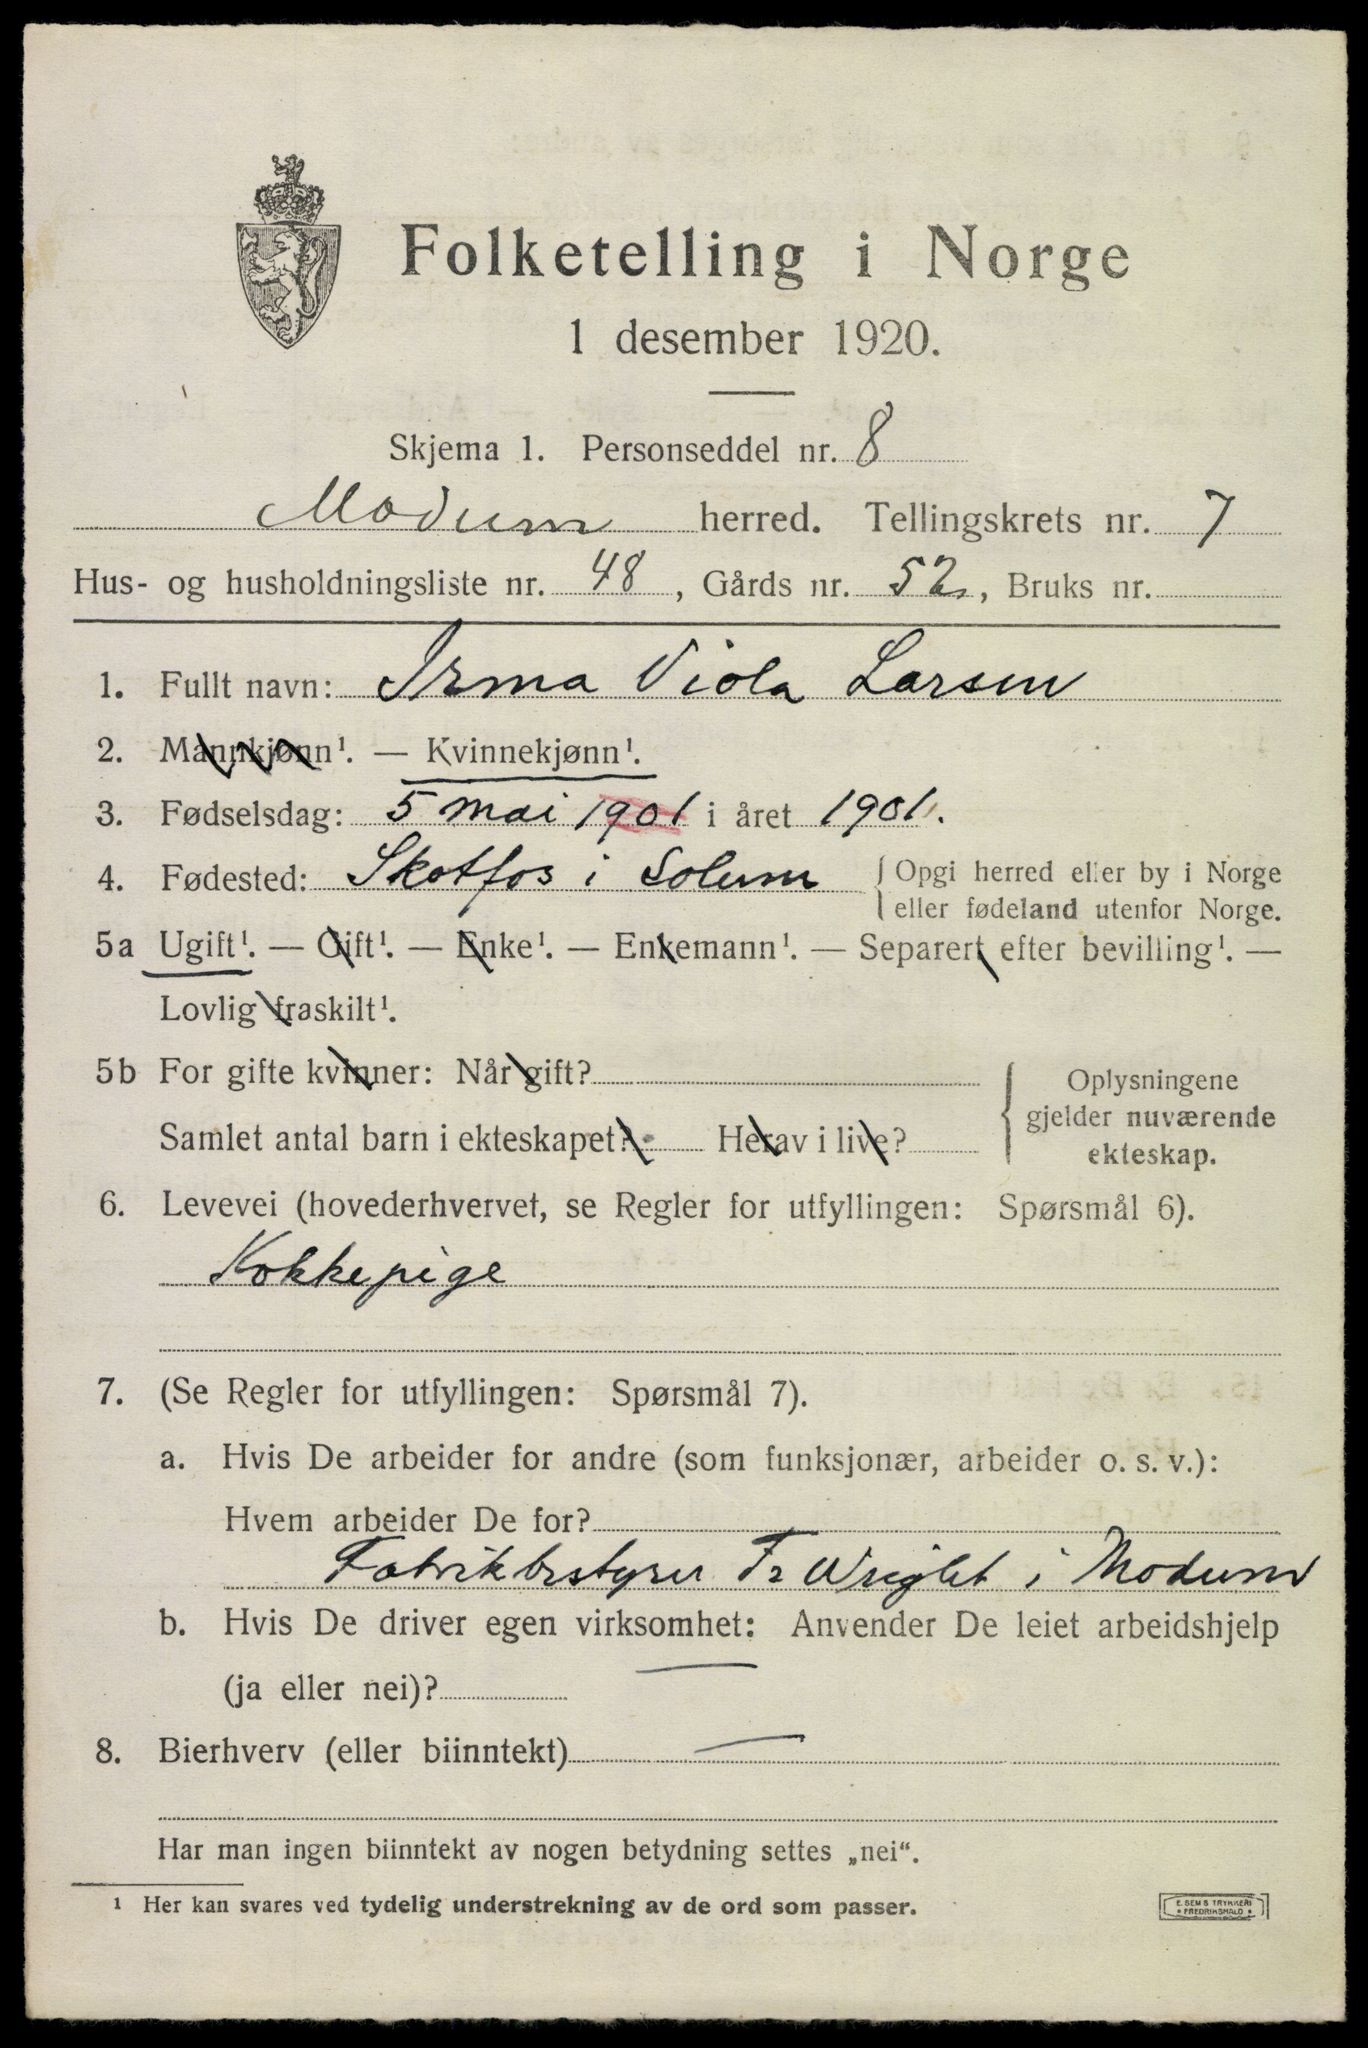 Folketelling i Norge
1 desember 1920.
Skjema 1. Personseddel nr. 8
Modum herred. Tellingskrets nr. 7
Hus- og husholdningsliste nr. 48, Gårds nr. 52, Bruks nr.
1. Fullt navn: Irma Viola Larsen
2. Mannkjønn¹. — Kvinnekjønn¹.
3. Fødselsdag: 5 mai 1901 i året 1901.
4. Fødested: Skotfos i Solum { Opgi herred eller by i Norge
eller fødeland utenfor Norge.
5a Ugift¹. — Gift¹. — Enke¹. — Enkemann¹. — Separert efter bevilling¹. —
Lovlig fraskilt¹.
5b For gifte kvinner: Når gift?
Samlet antal barn i ekteskapet? Herav i live?
Oplysningene
gjelder nuværende
ekteskap.
6. Levevei (hovederhvervet, se Regler for utfyllingen: Spørsmål 6).
Kokkepige
7. (Se Regler for utfyllingen: Spørsmål 7).
a. Hvis De arbeider for andre (som funksjonær, arbeider o. s. v.):
Hvem arbeider De for?
Fabrikbestyrer Fr Wriglet i Modum
b. Hvis De driver egen virksomhet: Anvender De leiet arbeidshjelp
(ja eller nei)? —
8. Bierhverv (eller biinntekt) —
Har man ingen biinntekt av nogen betydning settes „nei“.
¹ Her kan svares ved tydelig understrekning av de ord som passer.
E. SEMS TRYKKERI
• FREDRIKSHALD •